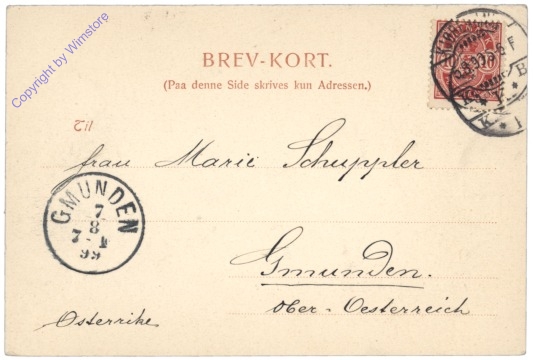 Copyright by Wimstore
BREV-KORT.
(Paa denne Side skrives kun Adressen.)
Til
frau Marie Schuppler
GMUNDEN
7
8
99
Gmunden.
Ober-Oesterreich
Osterrike